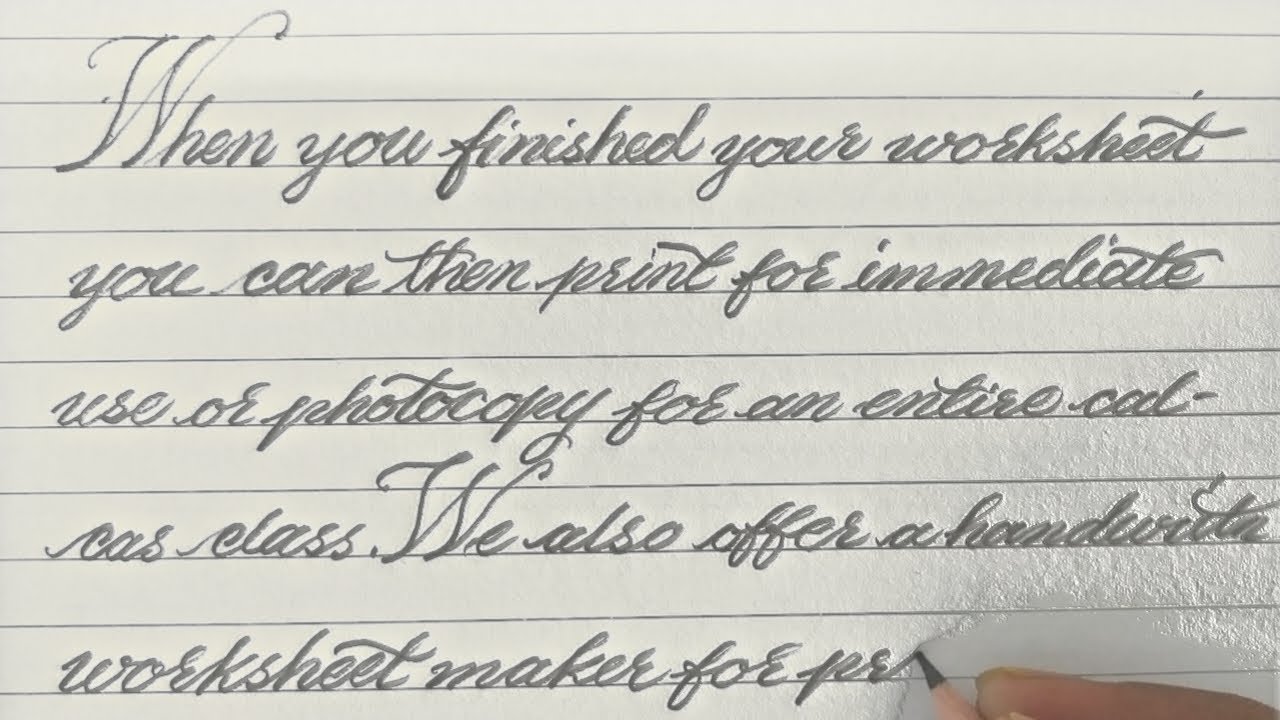 When you finished your worksheet
you can then print for immediate
use or photocopy for an entire cal-
cas class. We also offer a handwritn
worksheet maker for pr